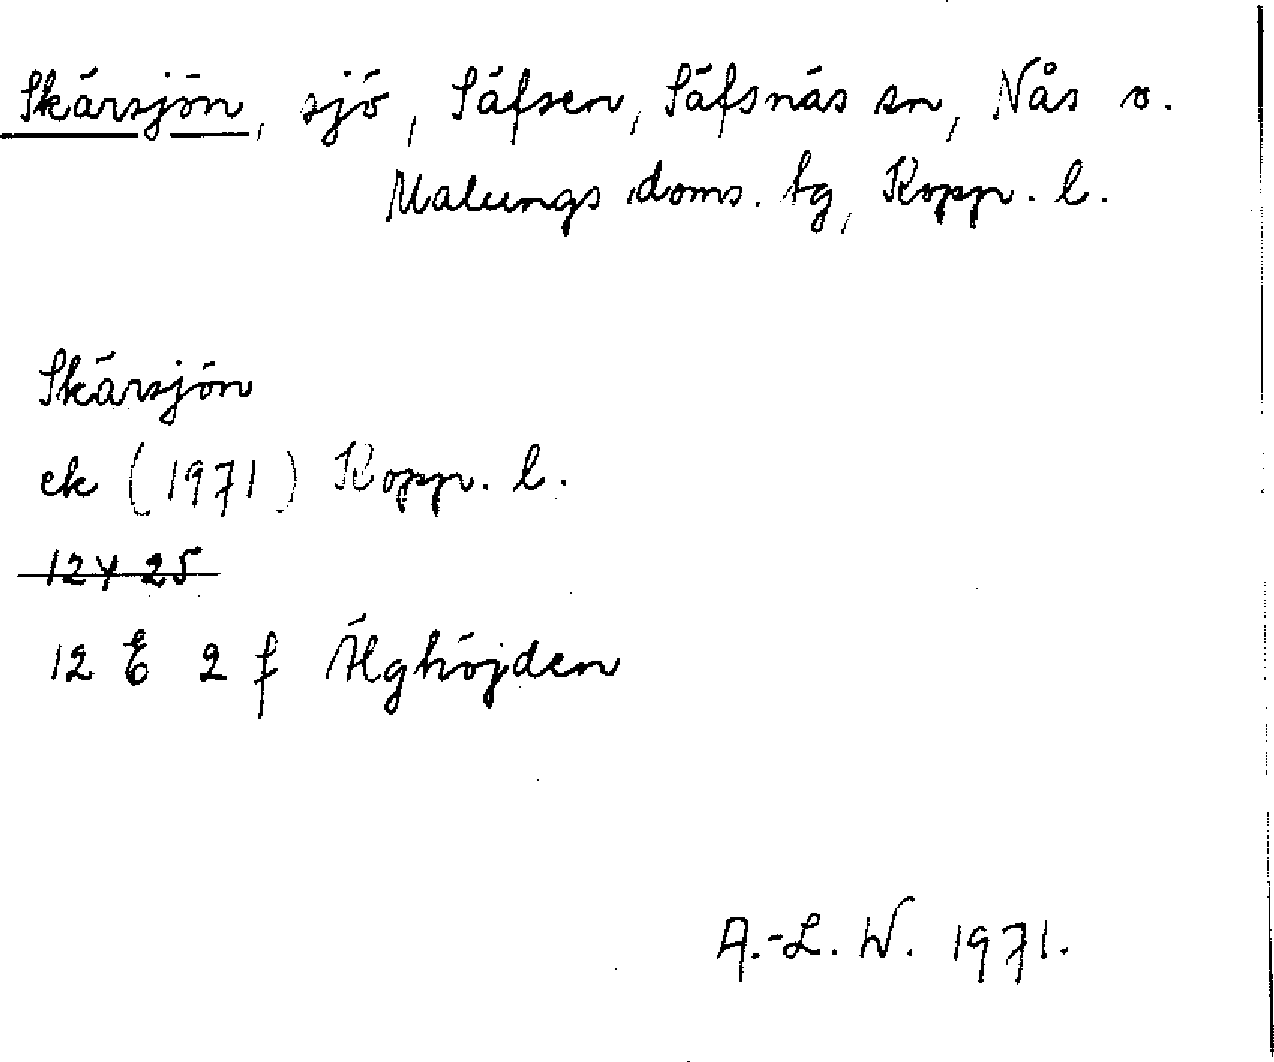 Skärsjön, sjö, Säfsen, Säfsnäs sn, Nås o.
Malungs doms. tg, Kopp. l.
Skärsjön
ek (1971) Kopp. l.
12Y 25
12 E 2 f Älghöjden
A.-L. W. 1971.